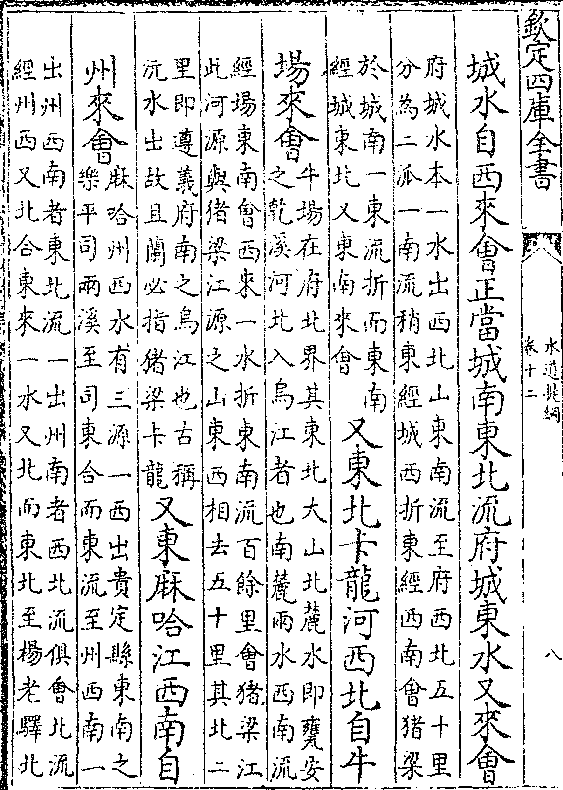 欽定四庫全書
水道提綱
卷十二
八
城水自西來會正當城南東北流府城東水又來會
府城水本一水出西北山東南流至府西北五十里
分為二派一南流稍東經城西折東經西南會猪梁
於城南一東流折而東南
經城東北又東南來會
又東北卡龍河西北自牛
場來會
牛場在府北界其東北大山北麓水即甕安
之乾溪河北入烏江者也南麓兩水西南流
經場東南會西來一水折東南流百餘里會猪梁江
此河源與猪梁江源之山東西相去五十里其北二
里即遵義府南之烏江也古稱
沅水出故且蘭必指猪梁卡龍
又東麻哈江西南自
州來會
麻哈州西水有三源一西出貴定縣東南之
樂平司兩溪至司東合而東流至州西南一
出州西南者東北流一出州南者西北流俱會北流
經州西又北合東來一水又北而東北至楊老驛北